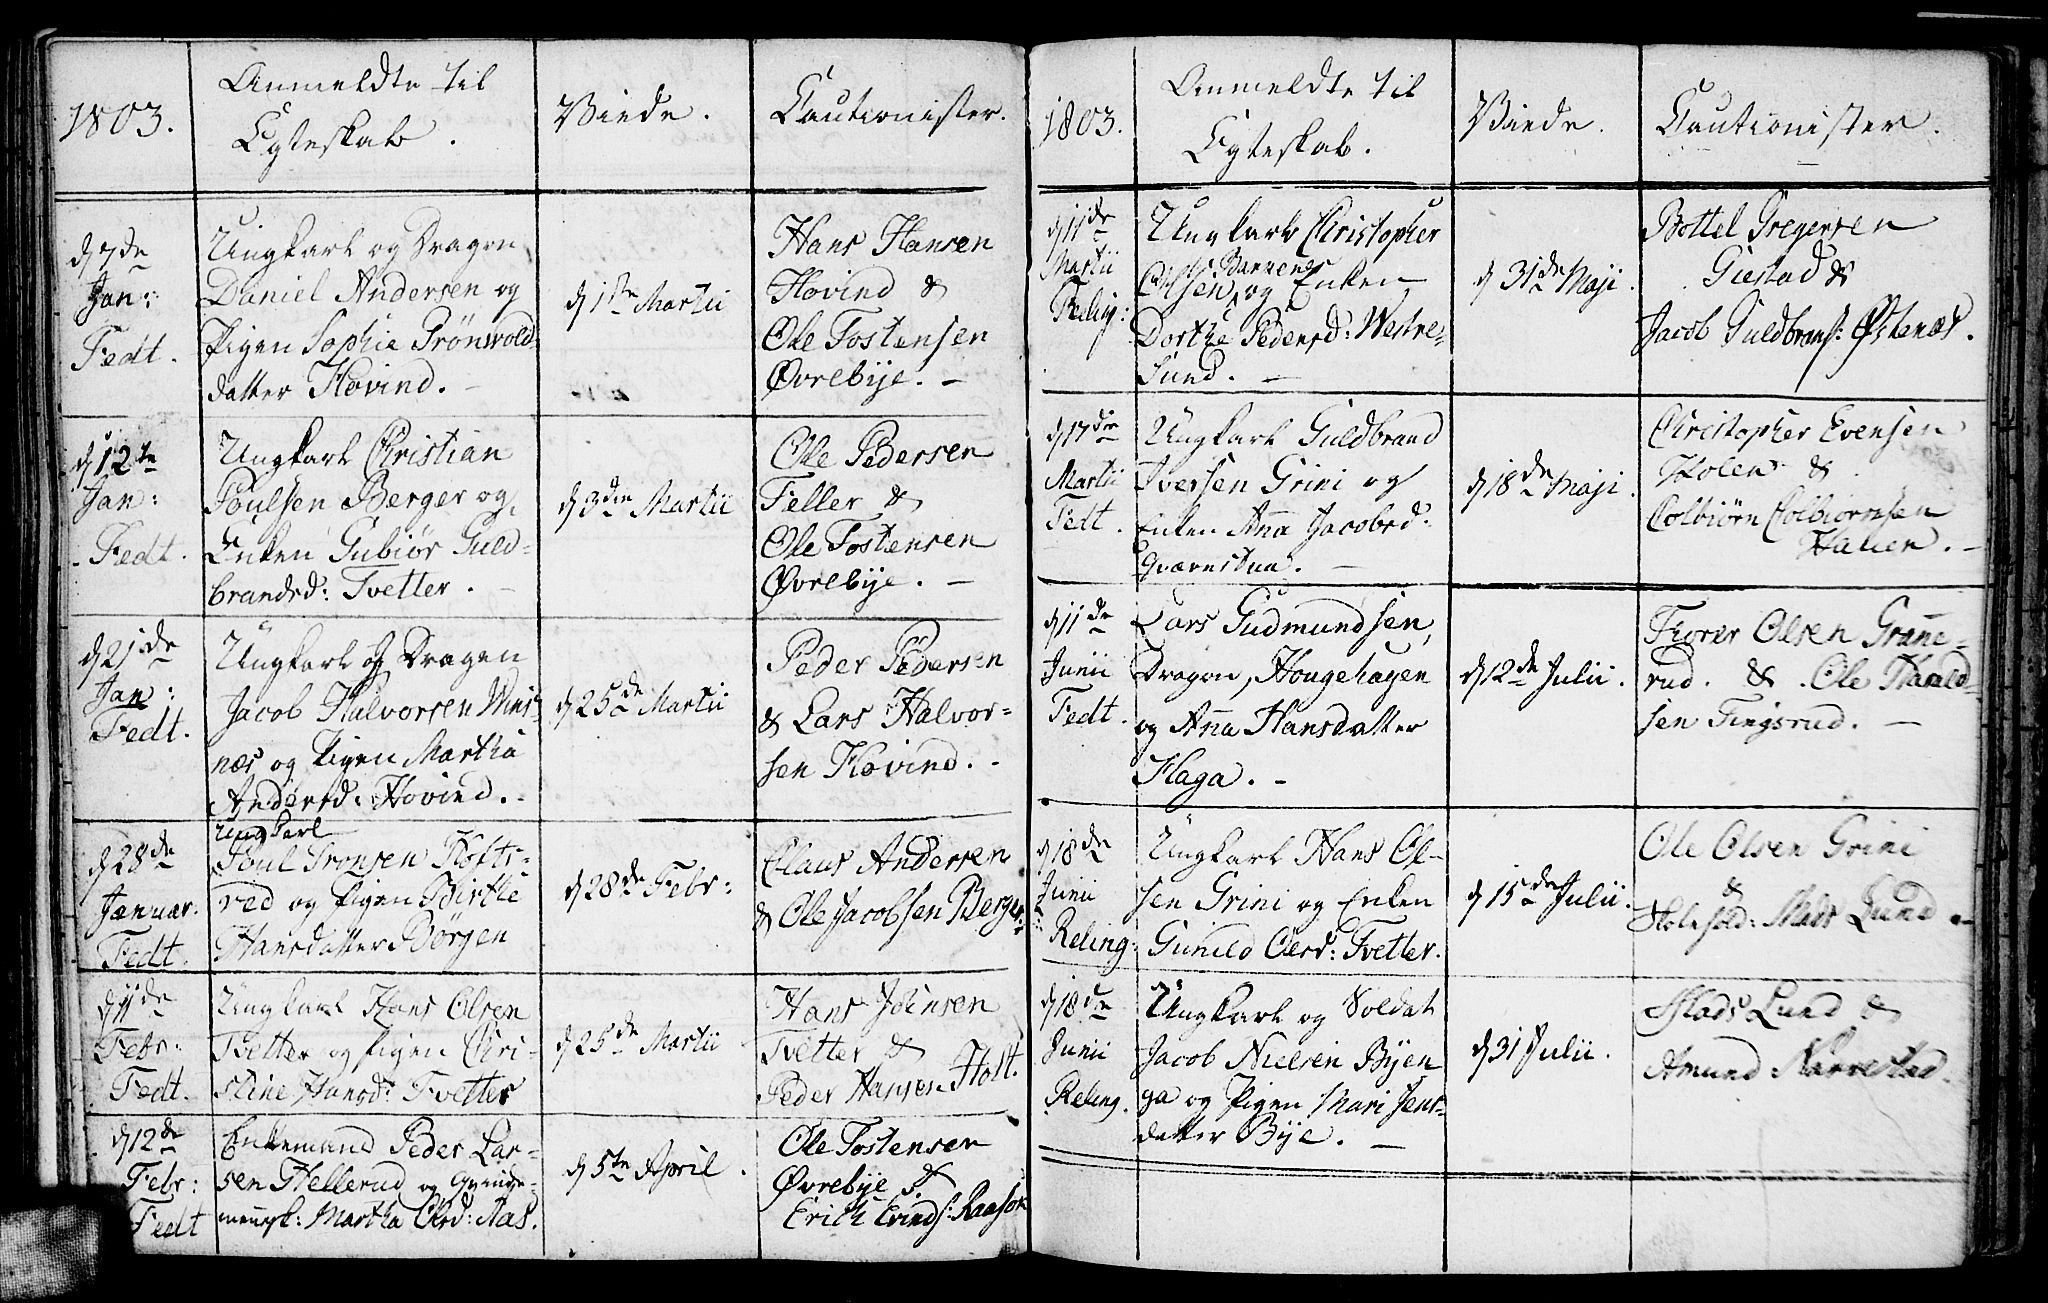 1803.
Anmeldte til
Egteskab.
Viede.
Cautionister.
d 7de
Jan:
Fedt.
Ungkarl og Dragon
Daniel Andersen og
Pigen Sophie Grönwold-
datter Hovind. -
d 1ste Martii
Hans Hansen
Hovind &
Ole Tostensen
Øvrebye. -
d 12te
Jan:
Fedt.
Ungkarl Christian
Poulsen Berger og
Enken Gubiør Guld-
brandsd: Tvetter.
d 3die Martii
Ole Pedersen
Feller &
Ole Tostensen
Øvrebye. -
d 21de
Jan:
Fedt.
Ungkarl og Dragon
Jacob Halvorsen Wins-
nes og Pigen Martha
Andersd: Hovind. -
d 25de Martii
Peder Pedersen
& Lars Halvor-
sen Hovind. -
d 28de
Januar.
Fedt.
Ungkarl
Poul Tronsen Kofts-
rød og Pigen Birthe
Hansdatter Börgen
d 28de Febr:
Claus Andersen
& Ole Jacobsen Berger.
d 11de
Febr:
Fedt.
Ungkarl Hans Olsen
Tvetter og Pigen Chri-
stine Hansd: Tvetter
d 25de Martii
Hans Joensen
Tvetter &
Peder Hansen Holt.
d 12de
Febr:
Fedt
Enkemand Peder Lar-
sen Hellerud og Qvinde-
mensk: Martha Olsd: Aas.
d 5te April.
Ole Tostensen
Øvrebye &
Erich Evinds: Raasok
1803.
Anmeldte til
Egteskab.
Viede.
Cautionister.
d 11de
Martii
Reling:
Ungkarl Christopher
Olsen Bannenes og Enken
Dorthe Pedersd: Westre-
Sund. -
d 31de Maji.
Bottel Gregersen
Giestad &
Jacob Guldbrans: Østenæs.
d 17de
Martii
Fedt.
Ungkarl Guldbrand
Iversen Grini og
Enken Anna Jacobsd:
Qvernstua. -
d 18de Maji.
Christopher Evensen
Holen &
Colbiörn Colbiörnsen
Hauer. -
d 11de
Junii
Fedt.
Lars Gudmundsen,
Dragon, Hougehagen
og Anna Hansdatter
Haga. -
d 12de Julii.
Thorer Olsen Granne-
rud. & Ole Harald-
sen Tingsrud. -
d 18de
Junii
Reling.
Ungkarl Hans Ol-
sen Grini og Enken
Gunild Olsd: Tvetter.
d 15de Julii.
Ole Olsen Grini
&
Mads Lund
d 18de
Junii
Reling.
Ungkarl og Soldat
Jacob Nielsen Byen-
ga og Pigen Mari Jens-
datter Bye. -
d 31 Julii.
Mads Lund &
Amund Narrestad.